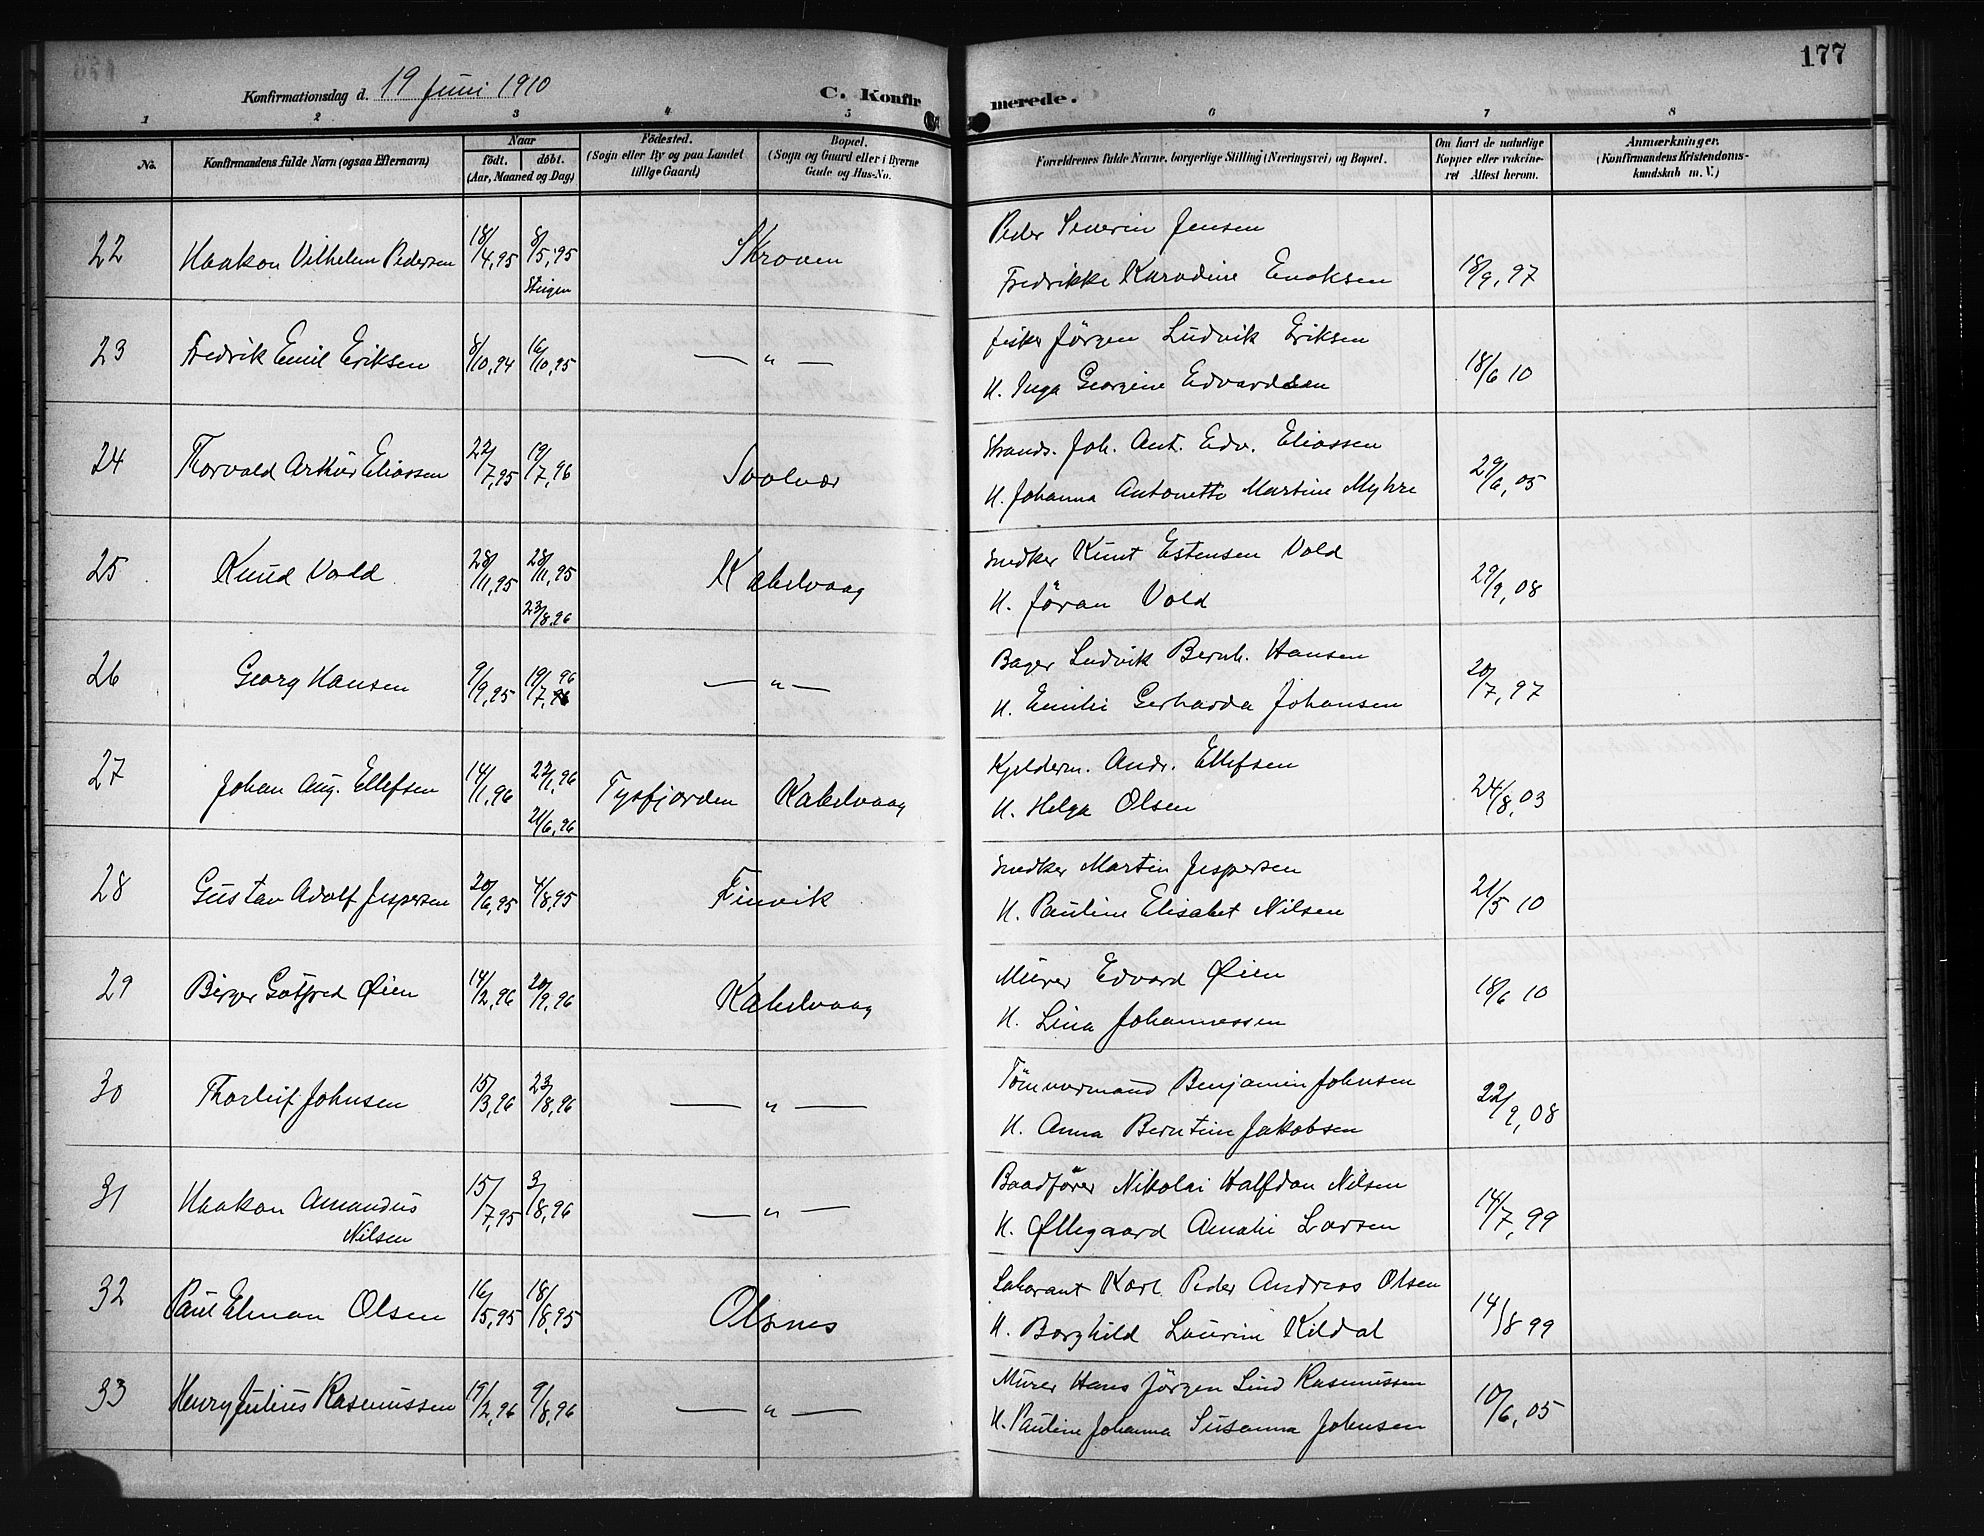 177
Konfirmationsdag d. 19 Juni 1910 C. Konfirmerede.
1 2 3 4 5 6 7 8
No. Konfirmandens fulde Navn (ogsaa Efternavn) Naar født. døbt. (Aar, Maaned og Dag) Fødested. (Sogn eller By og paa Landet tillige Gaard) Bopæl. (Sogn og Gaard eller i Byerne Gade og Hus-No. Forældrenes fulde Navne, borgerlige Stilling (Næringsvei) og Bopæl. Om havt de naturlige Kopper eller vakcineret Attest herom. Anmærkninger. (Konfirmandens Kristendomskundskab m. V.)
22 Haakon Vilhelm Pedersen 18/4,95 8/5,95 Steigen Skroven Peder Severin Jensen
Fredrikke Karodine Enoksen 18/9,97
23 Fredrik Emil Eriksen 8/10,94 16/10,95 — " — fisker Jörgen Ludvik Eriksen
H. Inga Georgine Edvardsen 18/6 10
24 Thorvald Arthur Eliassen 22/7,95 19/7,96 Svolvær Strands. Joh. Ant. Edv. Eliassen
H. Johanna Antonette Martine Myhre 29/6,05
25 Knud Vold 28/11,95 28/11,95 23/8,96 Kabelvaag Snedker Knut Estensen Vold
H. Jöran Vold 29/9,08
26 Georg Hansen 9/9,95 19/7,96 96 — " — Bager Ludvik Bernh. Hansen
H. Emilie Gerharda Johansen 20/7,97
27 Johan Aug. Ellefsen 14/1,96 22/1,96 21/6,96 Tysfjorden Kabelvaag Kjelderm. Andr. Ellefsen
H. Helga Olsen 24/8,03
28 Gustav Adolf Jespersen 20/6,95 4/8,95 Finvik Snedker Martin Jespersen
H. Pauline Elisabet Nilsen 21/5 10
29 Birger Gotfred Øien 14/2,96 20/9,96 Kabelvaag Murer Edvard Øien
H. Lina Johannessen 18/6 10
30 Thorleif Johnsen 15/3,96 23/8,96 — " — Tömmermand Benjamin Johnsen
H. Anna Berntine Jakobsen 22/9,08
31 Haakon Amandus Nilsen 15/7,95 3/8,96 — " — Baadfører Nikolai Halfdan Nilsen
H. Øllegaard Amalie Larsen 14/7,99
32 Paul Elman Olsen 16/5,95 18/8,95 Olsnes Laborant Karl Peder Andreas Olsen
H. Borghild Laurine Kildal 14/8 99
33 Henry Julius Rasmussen 19/2,96 9/8,96 — " — Murer Hans Jörgen Lind Rasmussen
H. Pauline Johanna Susanna Johnsen 10/6,05